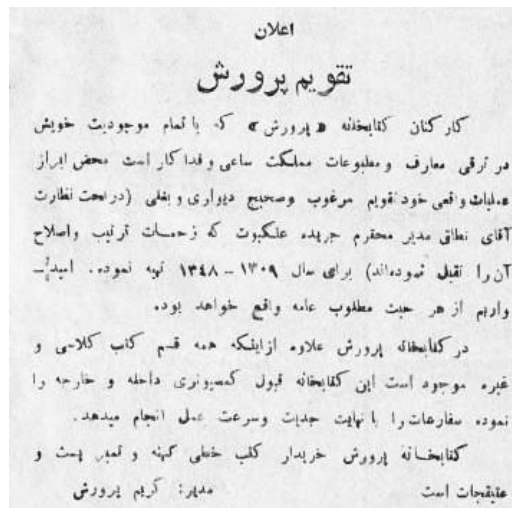 اعلان
تقویم پرورش
کارکنان کتابخانه «پرورش» که با تمام موجودیت خویش
در ترقی معارف و مطبوعات مملکت ساعی و فداکار است محض ابراز
عملیات واقعی خود تقویم مرغوب وصحیح دیواری و بغلی (در تحت نظارت
آقای نطاقی مدیر محترم جریده عنکبوت که زحمات ترتیب واصلاح
آن را تقبل نموده‌اند) برای سال ۱۳۰۹ – ۱۳٤۸ تهیه نموده. امید
واریم از هر حیث مطلوب عامه واقع خواهد بود.
در کتابخانه پرورش علاوه ازاینکه همه قسم کتب کلاسی و
غیره موجود است این کتابخانه قبول کمسیونری داخله و خارجه را
نموده سفارعات را با نهایت جدیت وسرعت عمل انجام میدهد.
کتابخانه پرورش خریدار کتب خطی کهنه و تمبر پست و
عتیقجات است مدیر: کریم پرورش